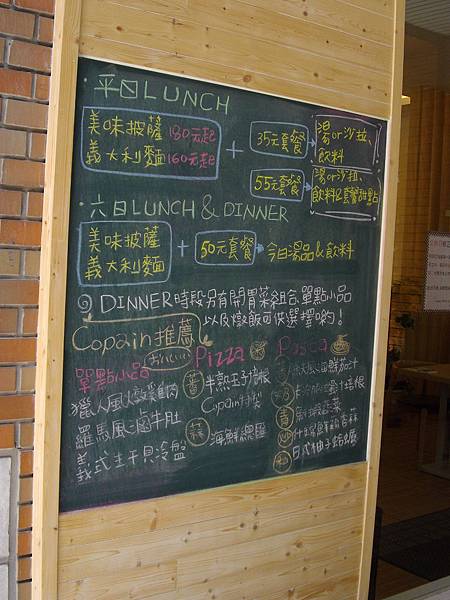 ·平日LUNCH
美味披薩 180元起
義大利麵 160元起
+
35元套餐
湯or沙拉、
飲料
55元套餐
湯or沙拉、
飲料&套餐甜點
·六日LUNCH & DINNER
美味披薩
義大利麵
+
50元套餐
今日湯品&飲料
DINNER時段另有開胃菜組合、單點小品
以及燉飯可供選擇喲!
Copain推薦
おいしい
單點小品
獵人風火燉雞肉
羅馬風滷牛肚
義式生干貝冷盤
Pizza
半熟玉子培根
Copain特製
海鮮總匯
Pasta
日式柚子蛤蠣